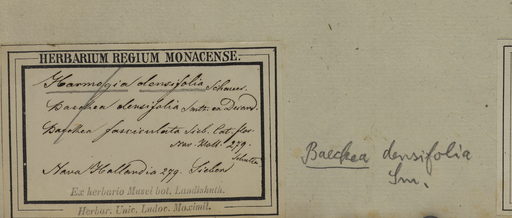 HERBARIUM REGIUM MONACENSE.
Harmogia densifolia Schauer.
Baeckea densifolia Smith. ex Decand.
Baeckea fasciculata Sieb. Cat. flor.
Nov. Holl. 279.
Schultes
Nova Hollandia 279. Sieber
Ex herbario Musei bot. Landishuth.
Herbar. Univ. Ludov. Maximil.
Baeckea densifolia
Sm.